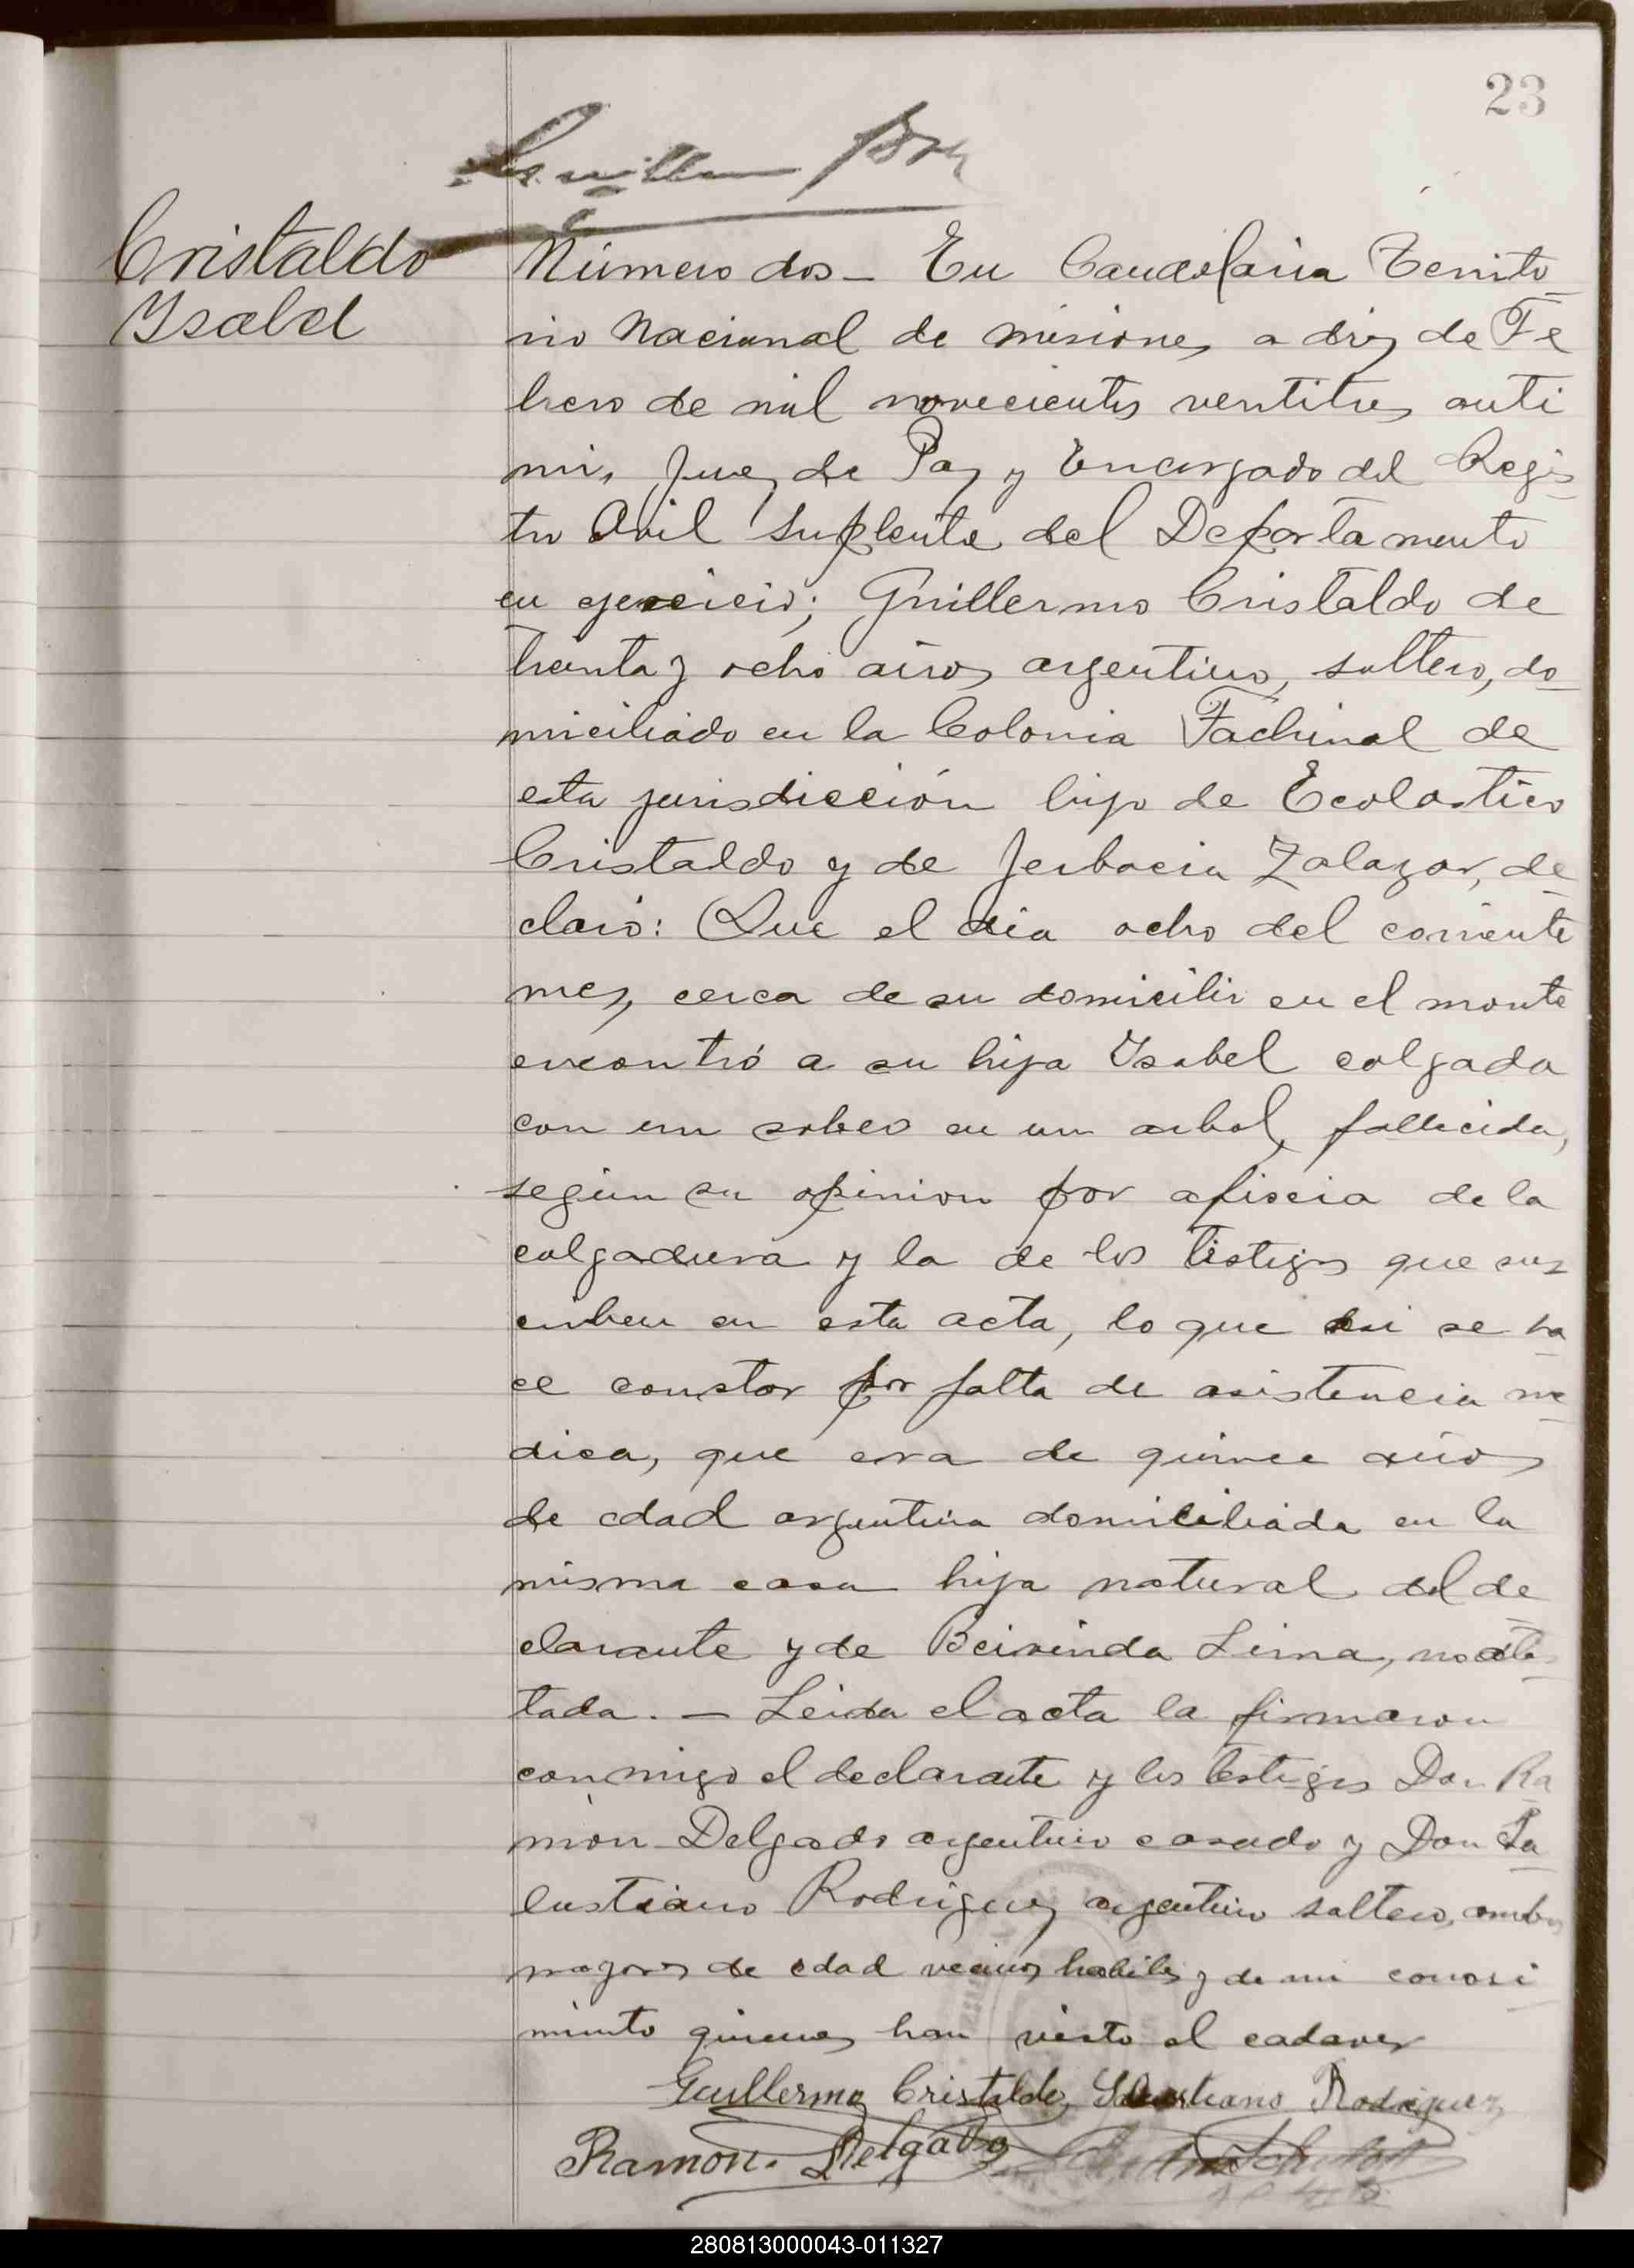 23
Cristaldo
Ysabel
Número dos _ En Candelaria Territo
rio Nacional de misiones, a diez de Fe
brero de mil novecientos ventitres, anti
mi, Juez de Paz y Encargado del Regis
tro Civil Suplente del Departamento
en ejercicio; Guillermo Cristaldo de
treinta y ocho años, argentino, soltero, do
miciliado en la Colonia Fachinal de
esta jurisdicción hijo de Ecolastico
Cristaldo y de Jerbacia Zalazar, de
claró: Que el dia ocho del corriente
mes, cerca de su domicilio en el monte
encontró a su hija Ysabel colgada
con un sobeo en un arbol, fallecida,
según su opinion por afiscia de la
colgadura y la de los testigos que sus
criben en esta acta, lo que asi se ha
ce constar por falta de asistencia me
dica, que era de quince años
de edad argentina domiciliada en la
misma casa hija natural del de
clarante y de Beirinda Lima, no
tada. _ Leida el acta la firmaron
conmigo el declarante y los testigos Don Ra
món Delgado argentino casado y Don Sa
lustiano Rodriguez argentino soltero, ambos
mayores de edad vecinos habiles y de mi conosi
miento quienes han visto el cadaver
Guillermo Cristaldo, Salustiano Rodriguez
Ramon. Delgado
280813000043-011327